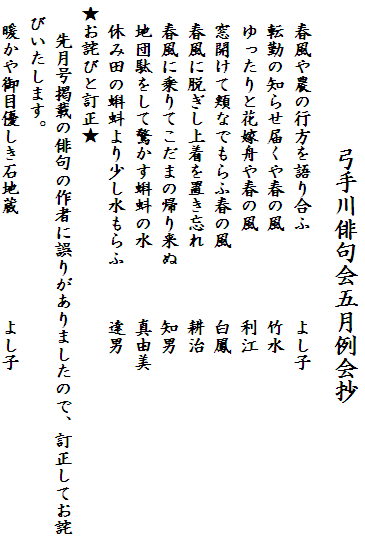 弓手川俳句会五月例会抄
春風や農の行方を語り合ふ　よし子
転勤の知らせ届くや春の風　竹水
ゆったりと花嫁舟や春の風　利江
窓開けて頬なでもらふ春の風　白鳳
春風に脱ぎし上着を置き忘れ　耕治
春風に乗りてこだまの帰り来ぬ　知男
地団駄をして驚かす蝌蚪の水　真由美
休み田の蝌蚪より少し水もらふ　達男
★お詫びと訂正★
先月号掲載の俳句の作者に誤りがありましたので、訂正してお詫
びいたします。
暖かや御目優しき石地蔵　よし子